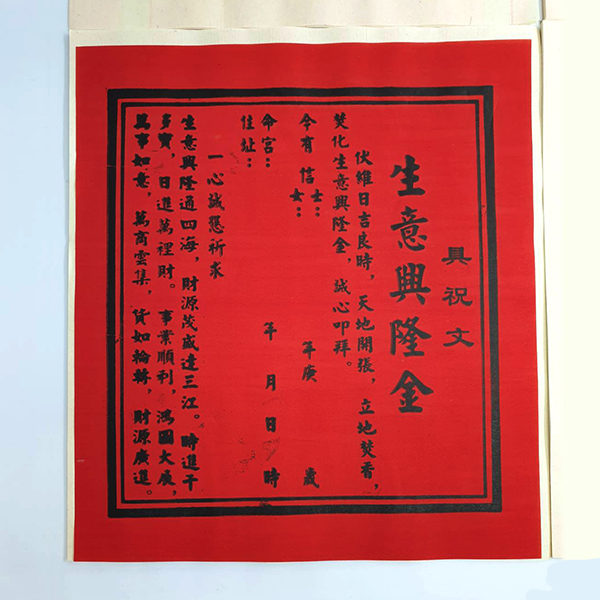 具祝文
生意興隆金
伏維日吉良時,天地開張,立地焚香,
焚化生意興隆金,誠心叩拜。
今有信士:女: 年庚 歲
命宮: 年月日時
住址:
一心誠懇祈求
生意興隆通四海,財源茂盛達三江。時進千
多寶,日進萬裡財。事業順利,鴻圖大展,
萬事如意,萬商雲集,貨如輪轉,財源廣進。